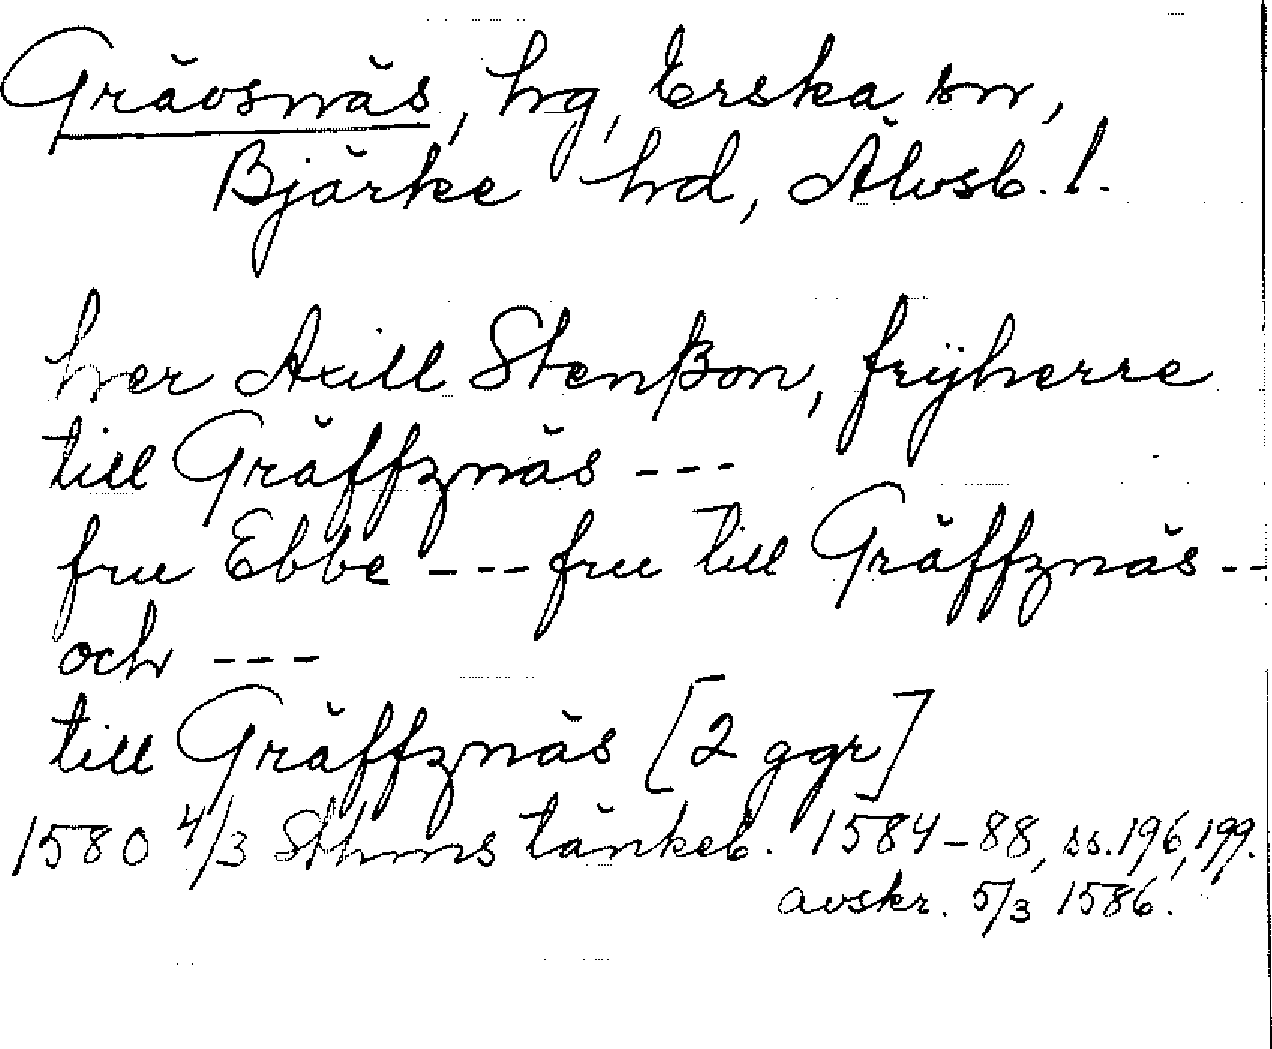 Grävsnäs, hg, Erska sn,
Bjärke hd, Älvsb. l.
her Axill Stenßon, frÿherre
till Gräffznäs ---
fru Ebbe --- fru till Gräffznäs --
och ---
till Gräffznäs [2 ggr]
1580 4/3 Sthms tänkeb. 1584-88, ss. 196, 199.
avskr. 5/3 1586.